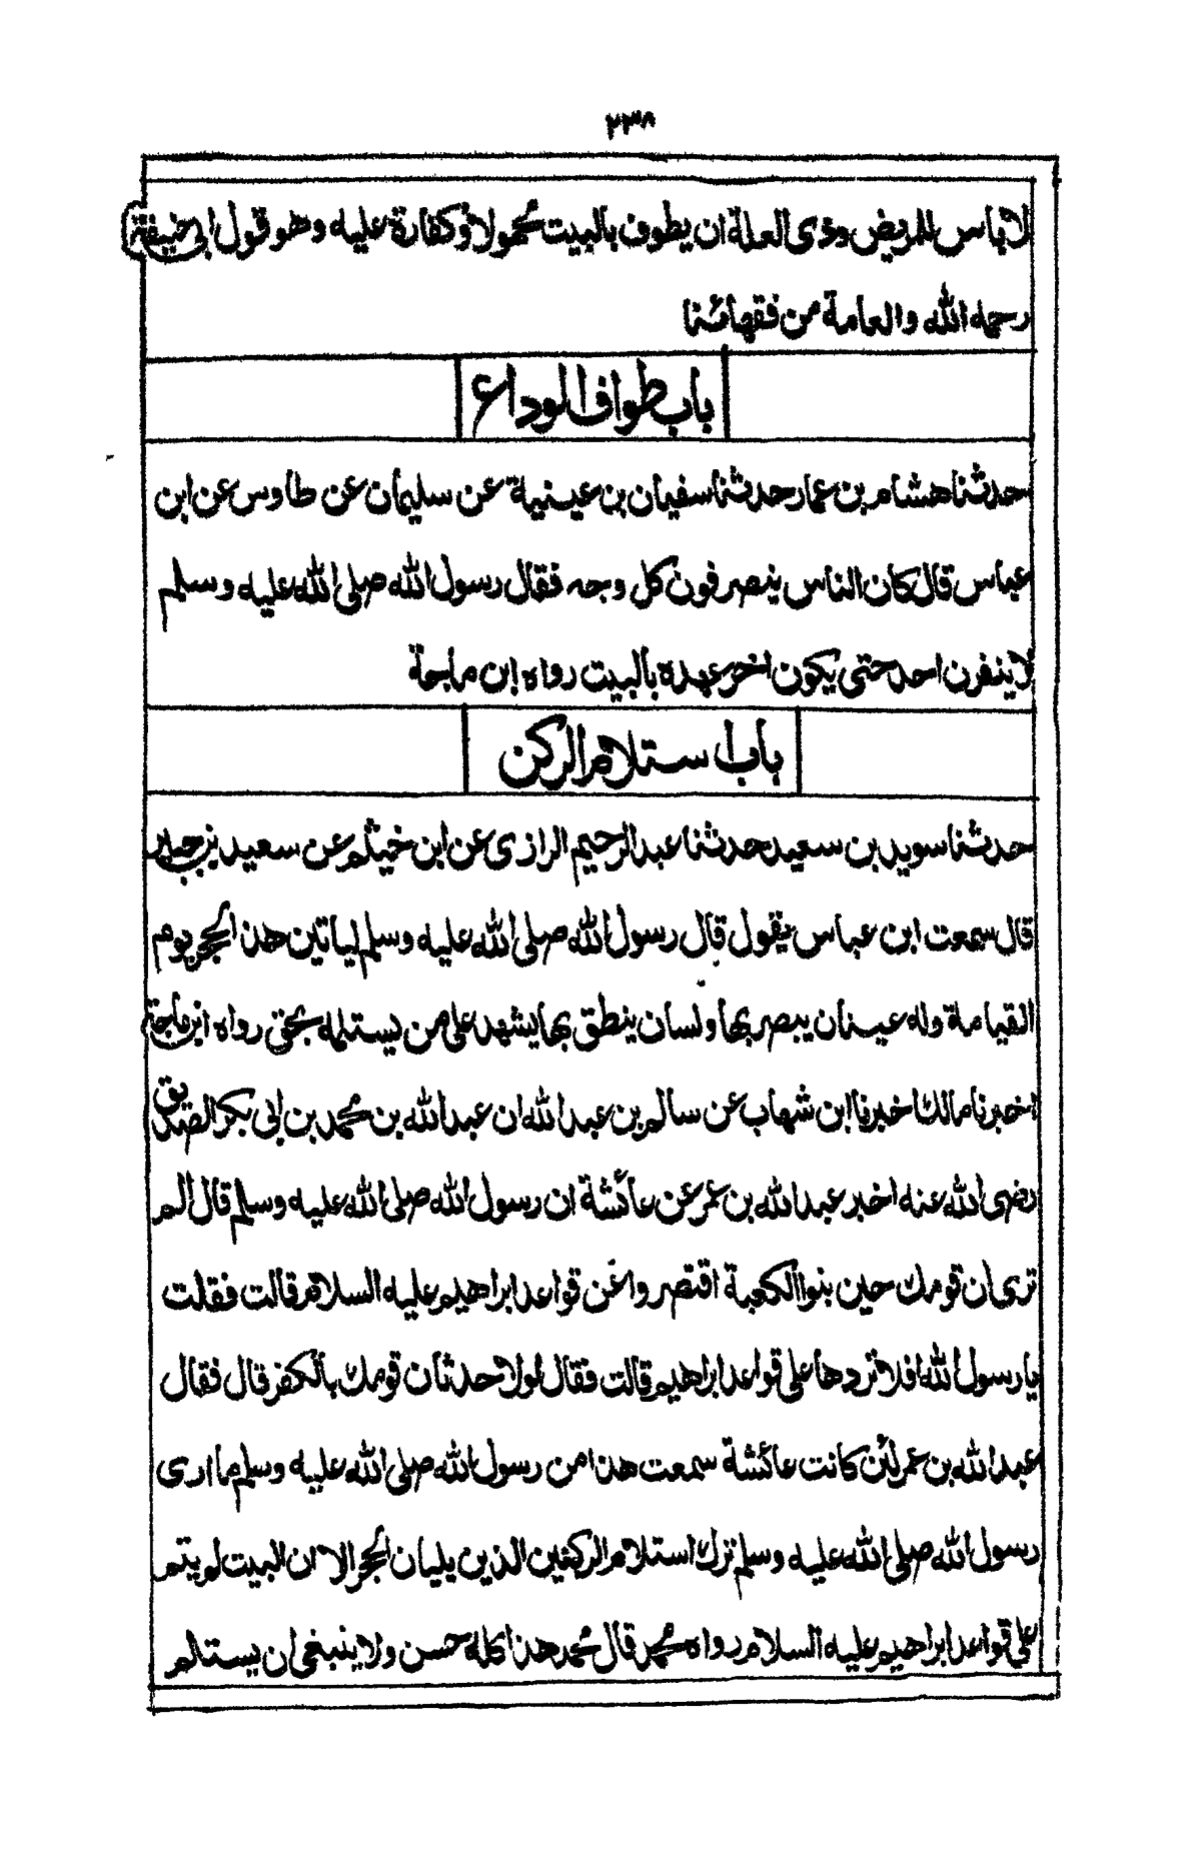 ٢٣٨
لا باس للمريض وذى العلة ان يطوف بالبيت محمولا ولا كفارة عليه وهو قول ابى حنيفة
رحمه الله والعامة من فقهائنا
باب طواف الوداع
حدثنا هشام بن عمار حدثنا سفيان بن عيينية عن سليمان عن طاوس عن ابن
عباس قال كان الناس ينصرفون كل وجه فقال رسول الله صلى الله عليه وسلم
لا ينفرن احد حتى يكون اخر عهده بالبيت رواه ابن ماجة
باب استلام الركن
حدثنا سويد بن سعيد حدثنا عبد الرحيم الرازى عن ابن خيثم عن سعيد بن جبير
قال سمعت ابن عباس يقول قال رسول الله صلى الله عليه وسلم لياتين هذا الحجر يوم
القيامة وله عينان يبصر بها ولسان ينطق بها يشهد على من يستلمه بحق رواه ابن ماجة
اخبرنا مالك اخبرنا ابن شهاب عن سالم بن عبد الله ان عبد الله بن محمد بن ابى بكر الصديق
رضى الله عنه اخبر عبد الله بن عمر عن عائشة ان رسول الله صلى الله عليه وسلم قال الم
ترى ان قومك حين بنوا الكعبة اقتصروا عن قواعد ابراهيم عليه السلام قالت فقلت
يا رسول الله افلا تردها على قواعد ابراهيم قالت فقال لولا حدثان قومك بالكفر قال فقال
عبد الله بن عمر لئن كانت عائشة سمعت هذا من رسول الله صلى الله عليه وسلم ما ارى
رسول الله صلى الله عليه وسلم ترك استلام الركنين الذين يليان الحجر الا ان البيت لم يتم
على قواعد ابراهيم عليه السلام رواه محمد قال محمد هذا كله حسن ولا ينبغى ان يستلم